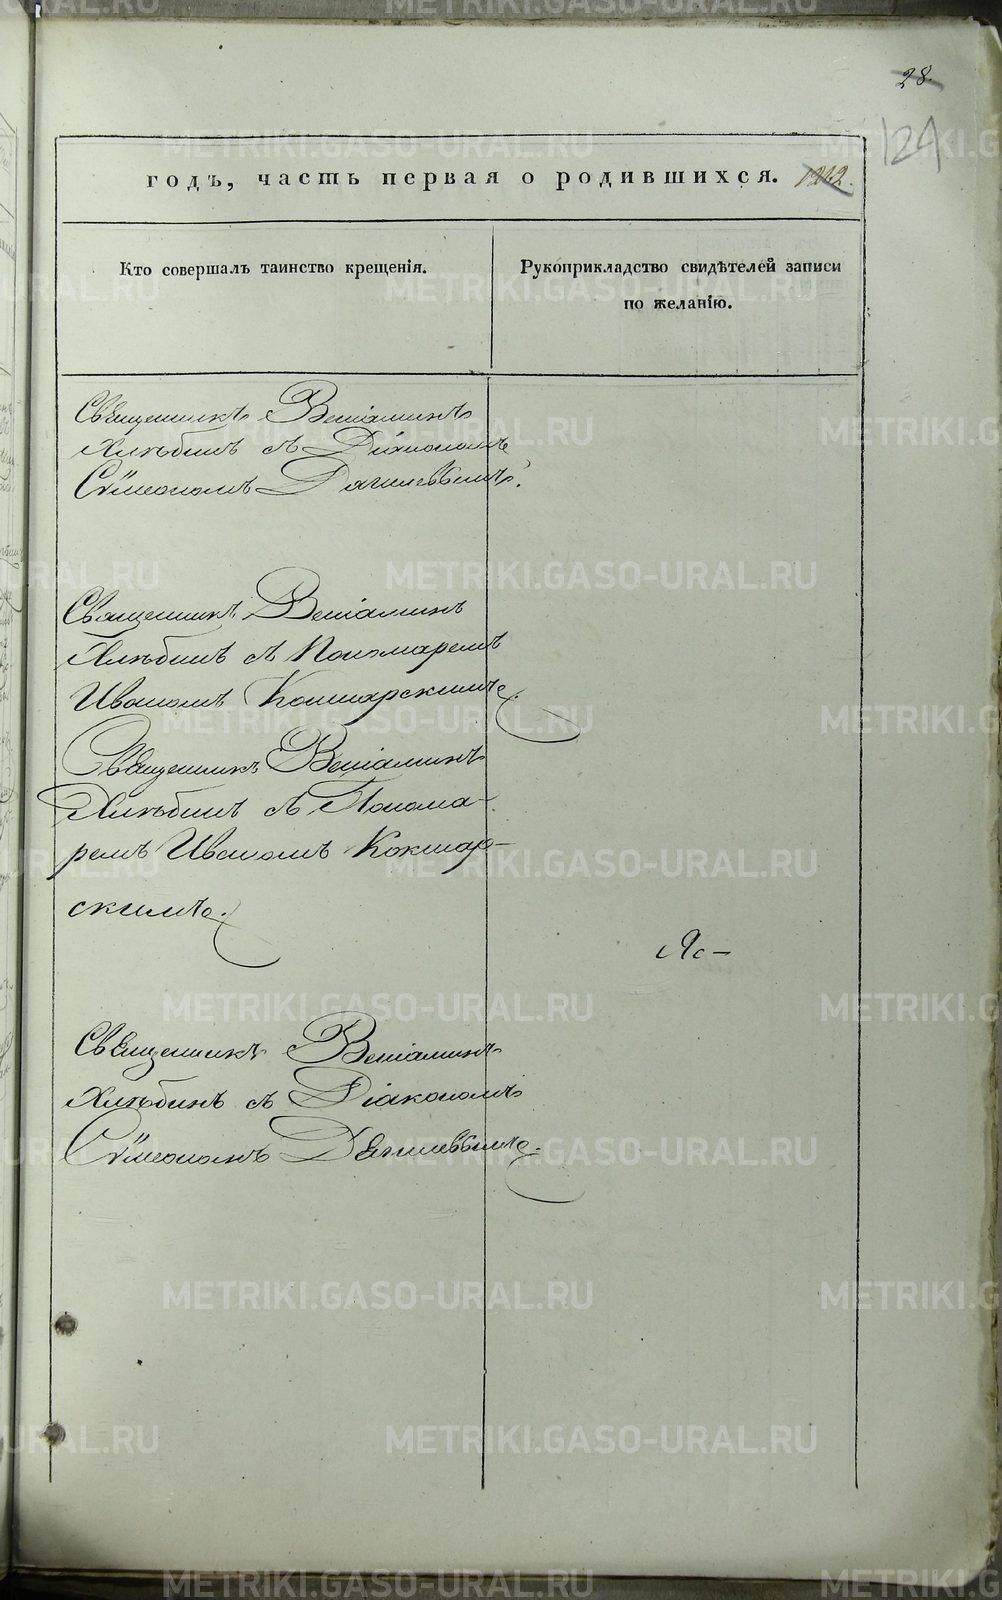 28.
124
годъ, часть первая о родившихся. 1242.
Кто совершалъ таинство крещенія.
Рукоприкладство свидѣтелей записи
по желанію.
Священникъ Веніаминъ
Хлѣбинъ съ Діакономъ
Сѵмеономъ
Священникъ Веніаминъ
Хлѣбинъ съ Пономаремъ
Иваномъ Кокшарскимъ.
Священникъ Веніаминъ
Хлѣбинъ съ Понома-
ремъ Иваномъ Кокшар-
скимъ.
Священникъ Веніаминъ
Хлѣбинъ съ Діакономъ
Сѵмеономъ
METRIKI.GASO-URAL.RU